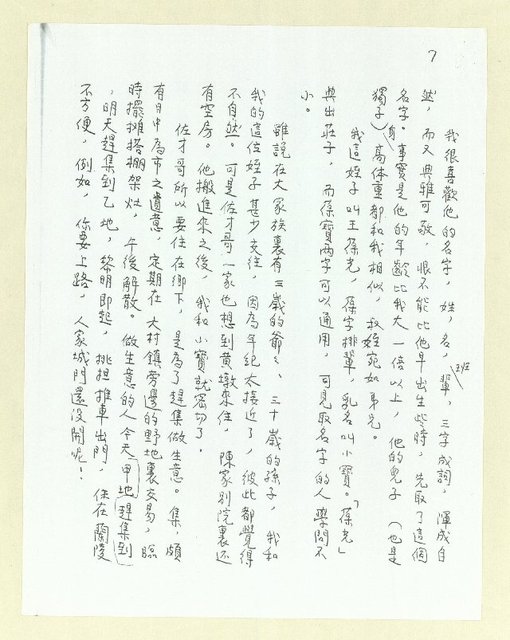 7
我很喜歡他的名字，姓，名，班輩，三字成詞，渾成自
然，而又典雅可敬，恨不能比他早出生些時，先取了這個
名字。事實是他的年齡比我大一倍以上，他的兒子（也是
獨子）身高體重都和我相似，叔姪宛如弟兄。
我這姪子叫王葆光，葆字排輩，乳名叫小寶。「葆光」
典出莊子，而葆寶兩字可以通用，可見取名字的人學問不
小。
雖說在大家族裏有三歲的爺爺，三十歲的孫子，我和
我的這位姪子甚少交往，因為年紀太接近了，彼此都覺得
不自然。可是佐才哥一家也想到黃墩來住，陳家別院裏還
有空房。他搬進來之後，我和小寶就密切了。
佐才哥所以要住在鄉下，是為了趕集做生意。集，頗
有日中為市之遺意，定期在大村鎮旁邊的野地裏交易，臨
時擺攤搭棚架灶，午後解散。做生意的人今天甲地趕集到
，明天趕集到乙地，黎明即起，挑担推車出門，住在蘭陵
不方便，例如，你要上路，人家城門還沒開呢！